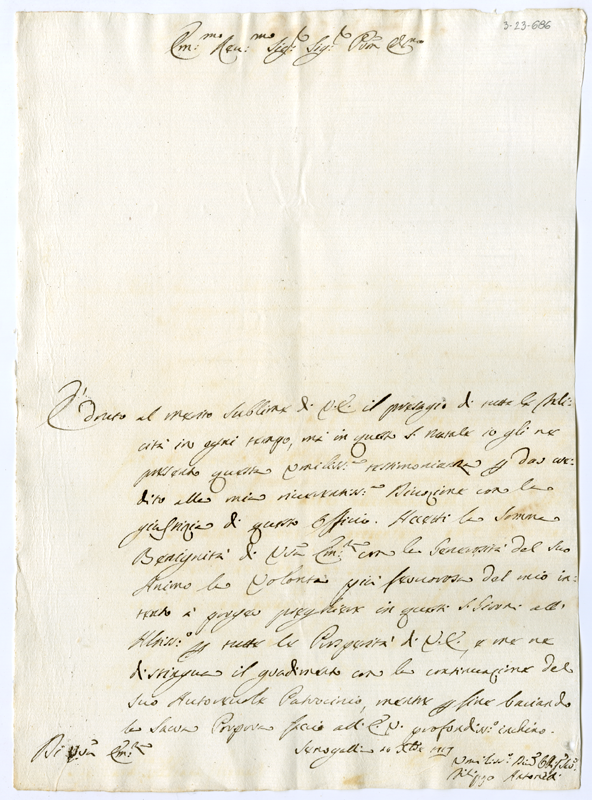 3-23-686
Em:mo Reu:mo Sig:re Sig:re Pron Col:mo
È douto al merito sublime di V.E. il presagio di tutte le feli:
cità in ogni tempo, mà in questo S. Natale io gli ne
presento questa umiliss:a testimonianza p dar cre:
dito alla mia riuerentiss:a Diuozione con la
giustizia di questo Offitio. Accetti la somma
Benignità di Vra Em:za con la Generosità del suo
Animo la Volontà più feruorosa del mio in:
tento à porger preghiere in questi S. Giorni all'
Altiss:o p tutte le Prosperità di V.E., e me ne
distingua il gradimento con la continuazione del
suo Autoreuole Patrocinio, mentre p fine baciando
la Sacra Porpora faccio all'E.V. profondiss:o inchino.
Di Vra Em:za
Senogallia 10 Xbre 1717
Umiliss:o Diu:o Obl:mo Seru:
Filippo Antonelli